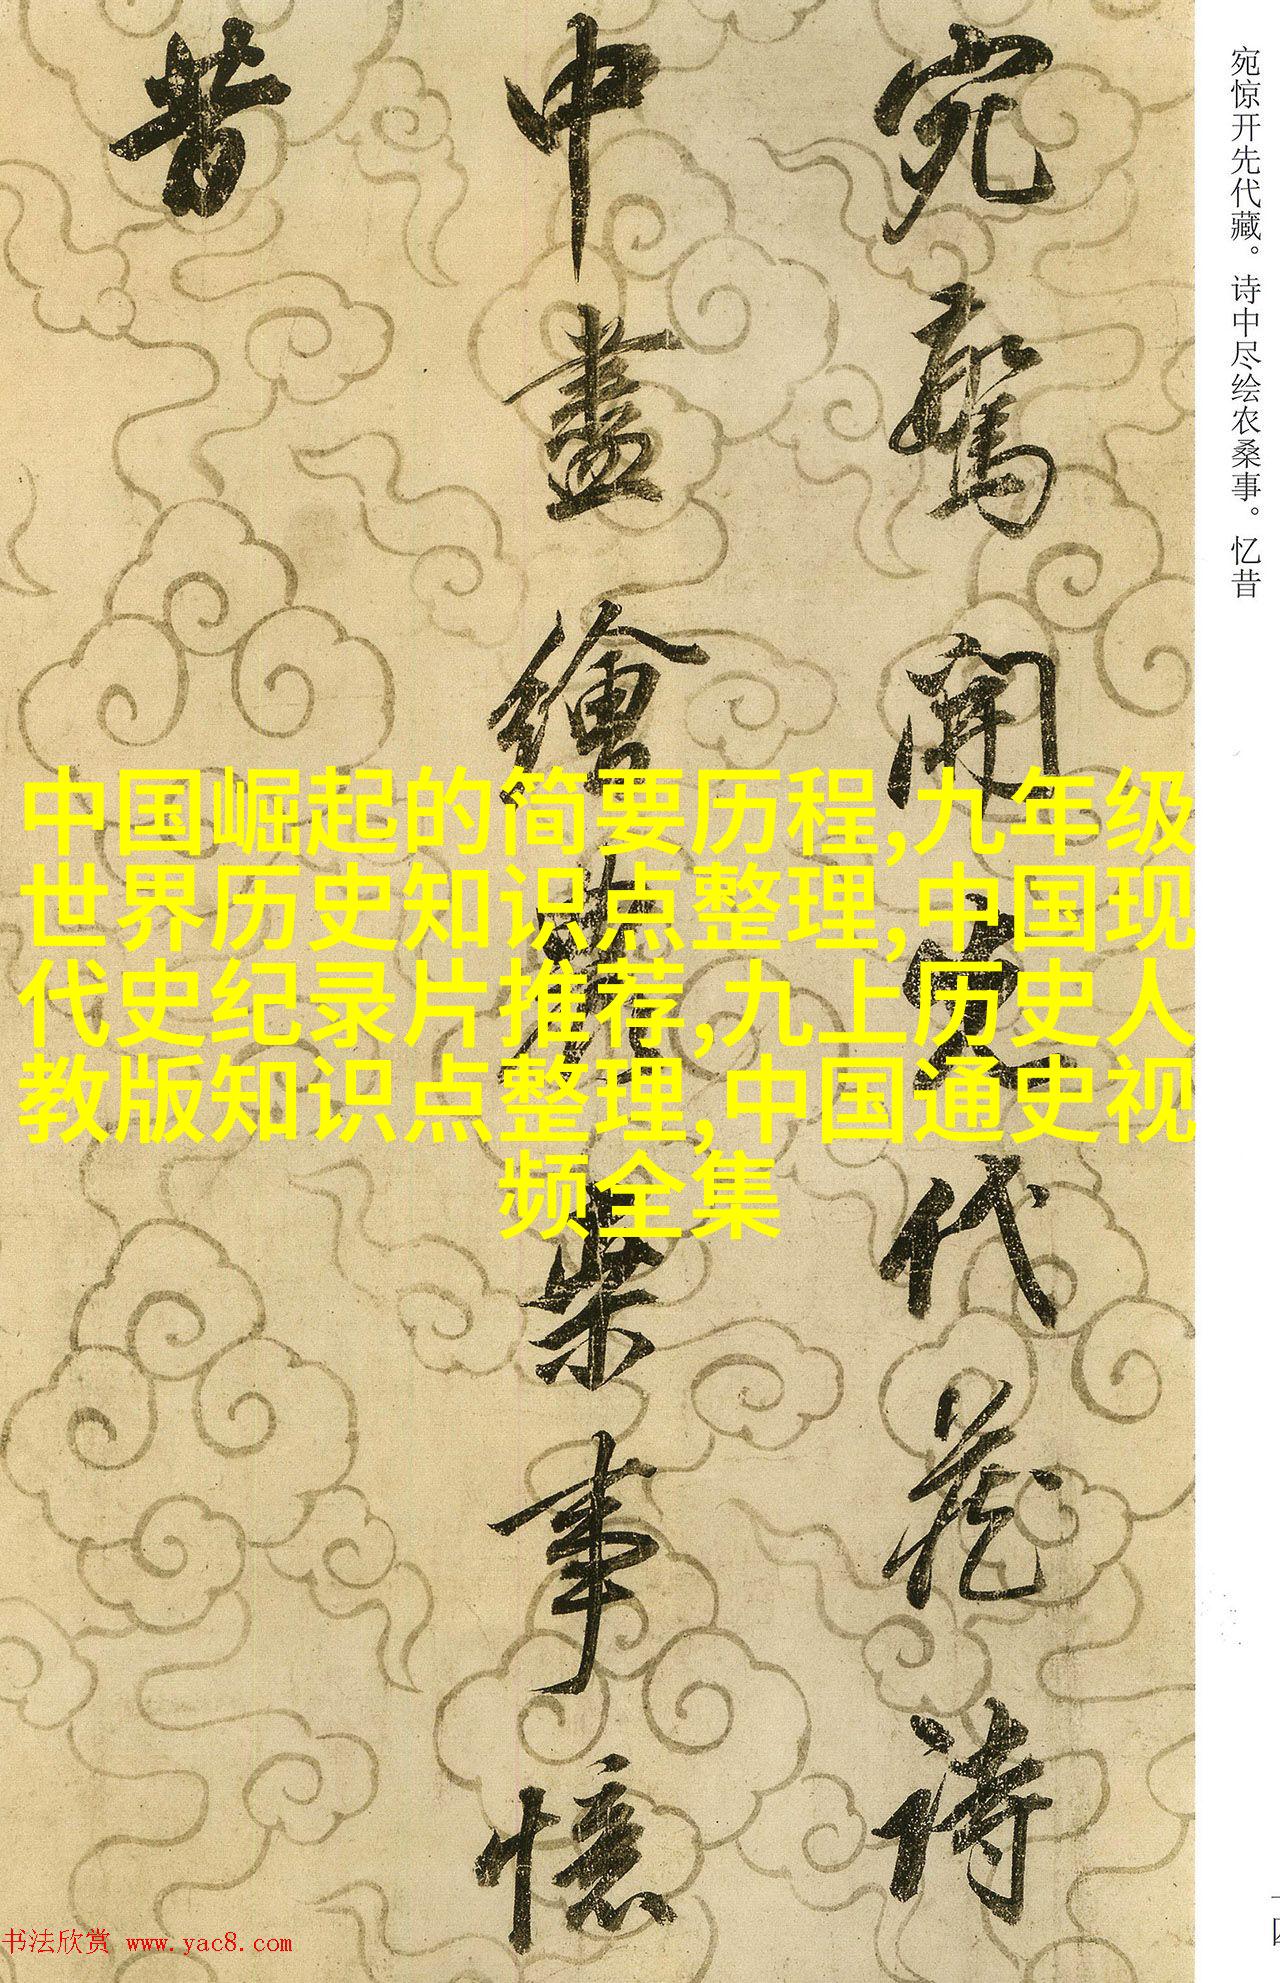 宛驚開先代藏詩
中盡繪農桑事憶
昔
宛惊开先代藏。诗中尽绘农桑事。忆昔
中国崛起的简要历程,九年级
世界历史知识点整理,中国现
代史纪录片推荐,九上历史人
教版知识点整理,中国通史视
频全集
书法欣赏 www.yac8.com